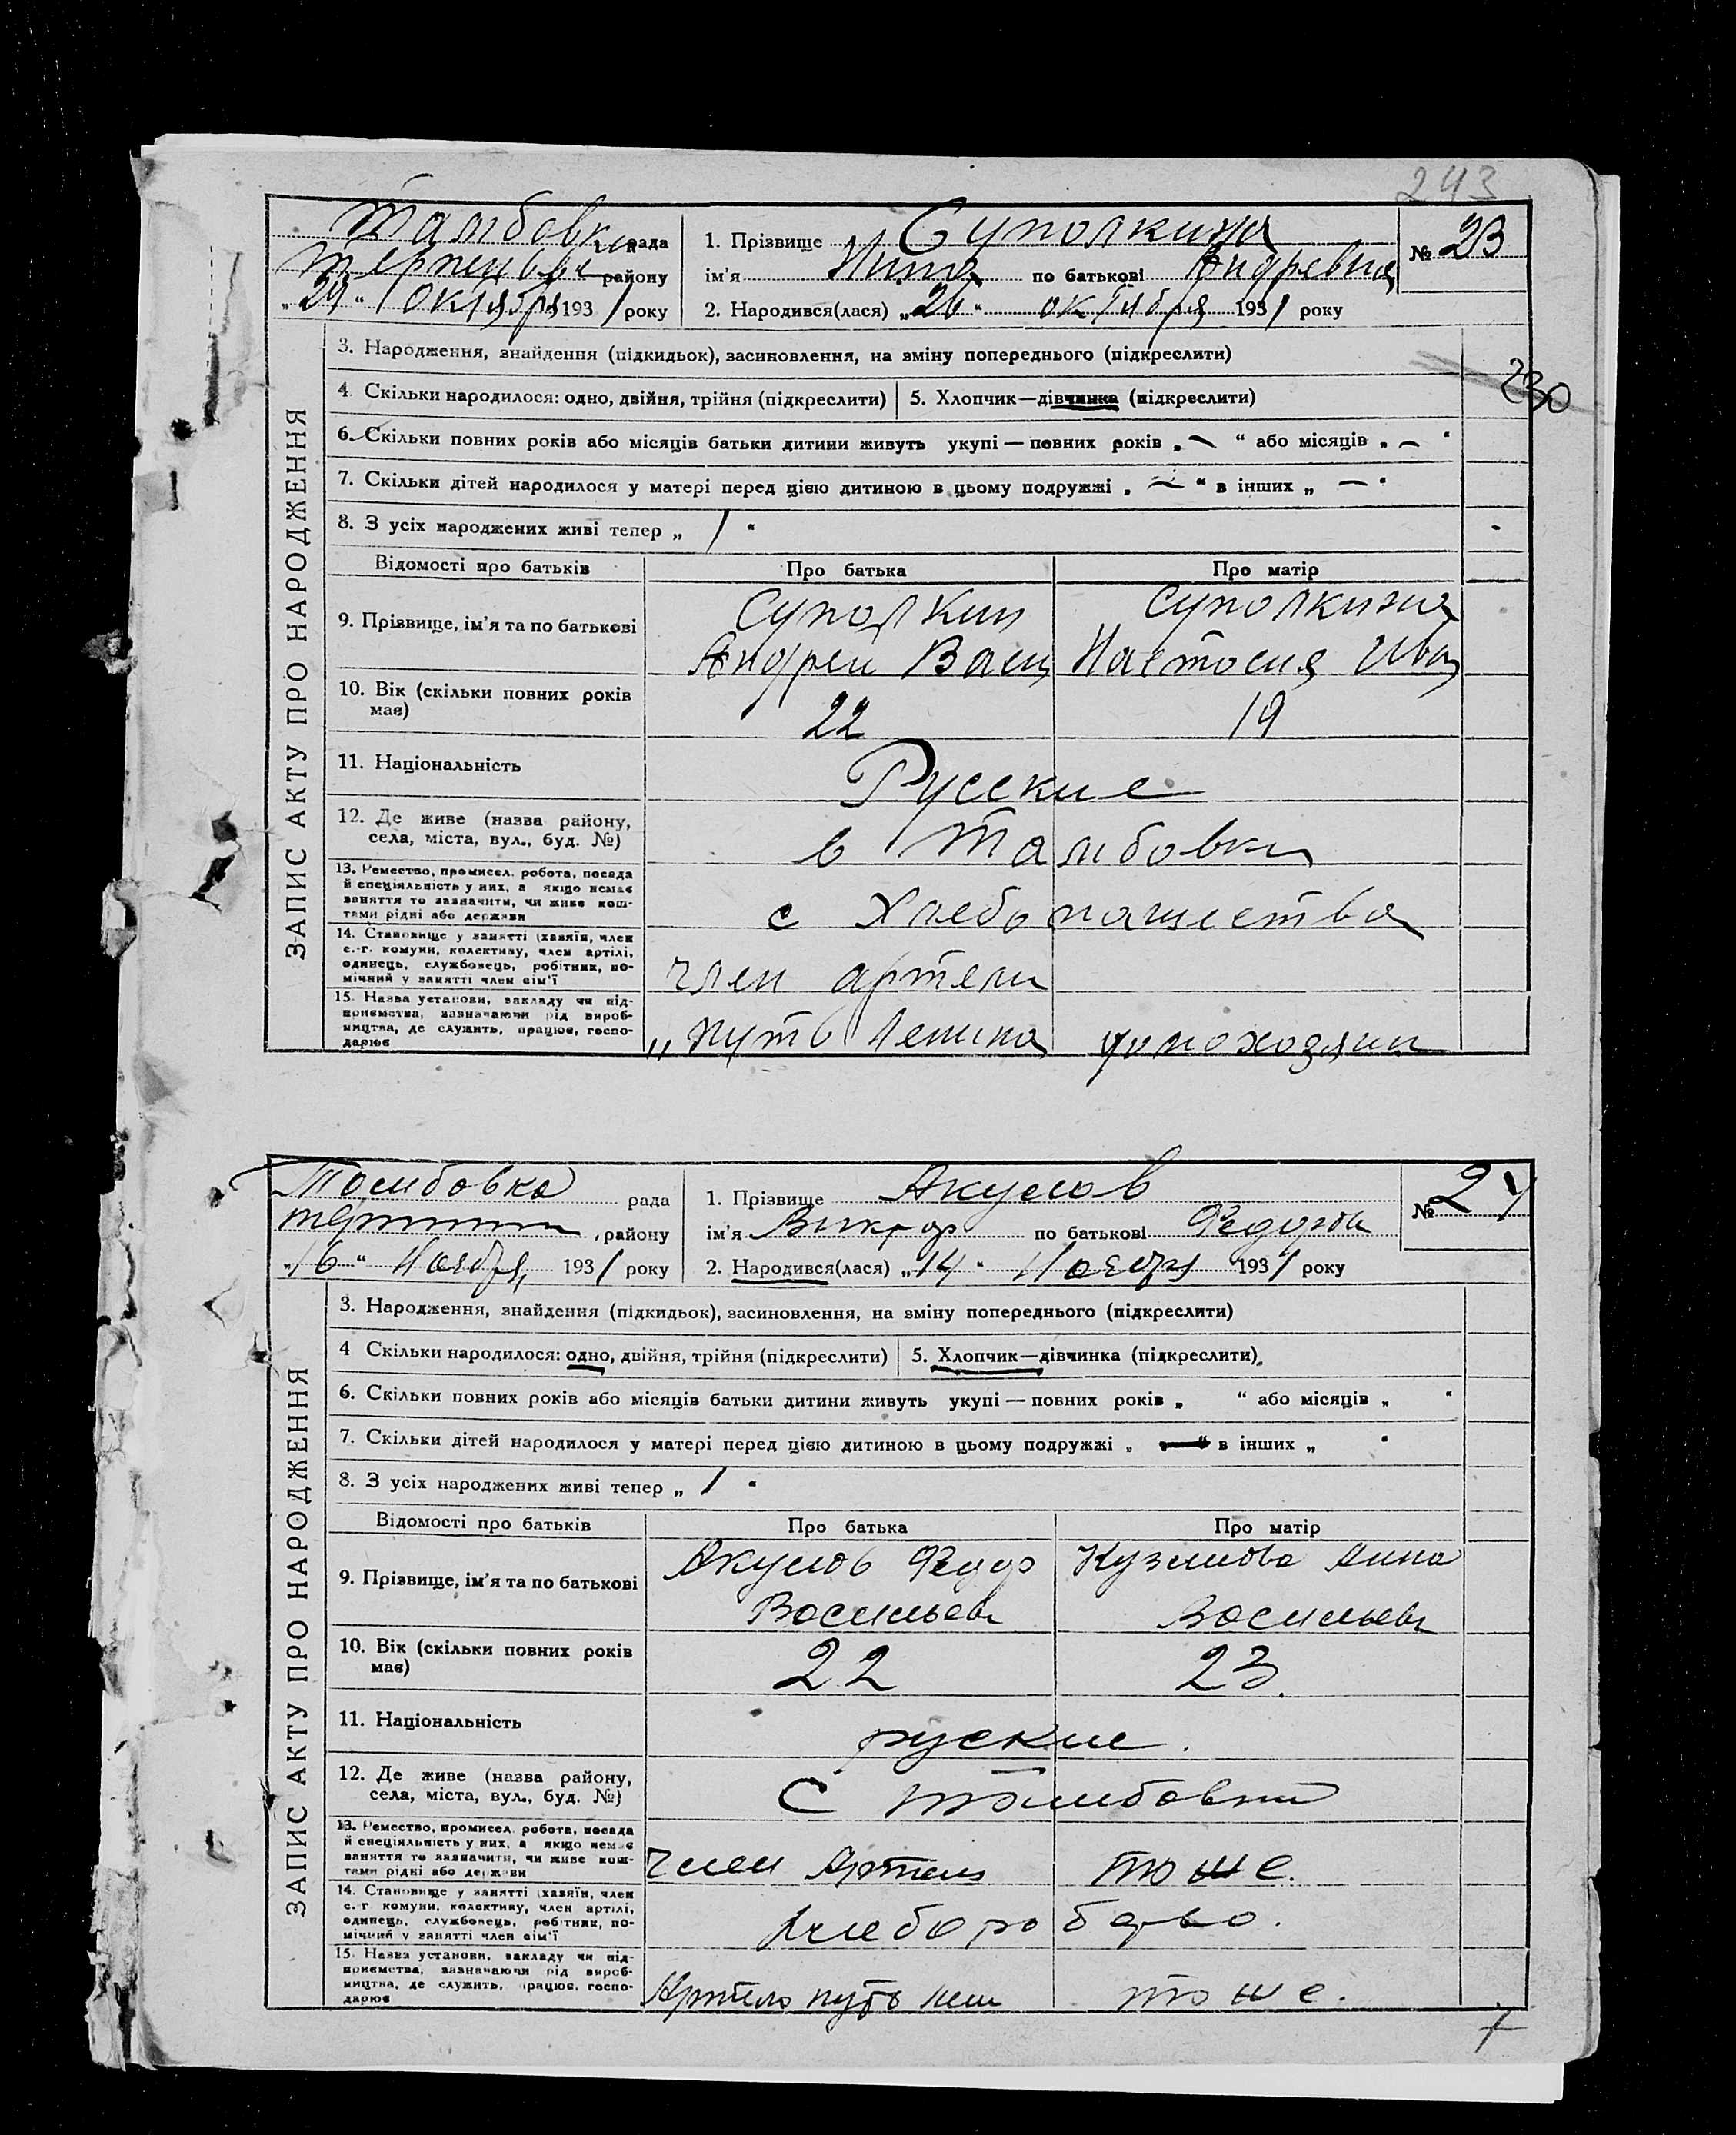 243
Тамбовки рада
1. Прізвище Суполкина
№ 23
району
ім'я Нина по батькові Андревна
„29“ Октября 1931 року
2. Народився(лася) „26“ октября 1931 року
ЗАПИС АКТУ ПРО НАРОДЖЕННЯ
3. Народження, знайдення (підкидьок), засиновлення, на зміну попереднього (підкреслити)
230
4. Скільки народилося: одно, двійня, трійня (підкреслити)
5. Хлопчик—дівчинка (підкреслити)
6. Скільки повних років або місяців батьки дитини живуть укупі — повних років „ — “ або місяців „ — “
7. Скільки дітей народилося у матері перед цією дитиною в цьому подружжі „ — “ в інших „ — “
8. З усіх народжених живі тепер „ 1 “
Відомості про батьків
Про батька
Про матір
9. Прізвище, ім'я та по батькові
Суполкин
Андреи Васи
Суполкина
Настосия Ива
10. Вік (скільки повних років
має)
22
19
11. Національність
Русские
12. Де живе (назва району,
села, міста, вул., буд. №)
в Тамбовки
13. Ремество, промисел, робота, посада
й спеціяльність у них, а якщо немає
заняття то зазначити, чи живе кош-
тами рідні або держави
с Хлебопашества
14. Становище у занятті (хазяїн, член
с.-г. комуни, колективу, член артілі,
одинець, службовець, робітник, по-
мічний у занятті член сім'ї
член артели
15. Назва установи, закладу чи під-
приємства, зазначаючи рід вироб-
ництва, де служить, працює, госпо-
дарює
„Путь Ленина
домохозяин
Тамбовка рада
1. Прізвище Акулов
№ 24
району
ім'я Виктор по батькові
„16“ Ноября 1931 року
2. Народився(лася) „14“ Ноября 1931 року
ЗАПИС АКТУ ПРО НАРОДЖЕННЯ
3. Народження, знайдення (підкидьок), засиновлення, на зміну попереднього (підкреслити)
4 Скільки народилося: одно, двійня, трійня (підкреслити)
5. Хлопчик—дівчинка (підкреслити)
6. Скільки повних років або місяців батьки дитини живуть укупі — повних років „ “ або місяців „ “
7. Скільки дітей народилося у матері перед цією дитиною в цьому подружжі „ — “ в інших „ “
8. З усіх народжених живі тепер „ 1 “
Відомості про батьків
Про батька
Про матір
9. Прізвище, ім'я та по батькові
Акулов Федор
Васильев
Кузмиова Анна
Васильев
10. Вік (скільки повних років
має)
22
23.
11. Національність
руские.
12. Де живе (назва району,
села, міста, вул., буд. №)
С Тамбовки
13. Ремество, промисел, робота, посада
й спеціяльність у них, а якщо немає
заняття то зазначити, чи живе кош-
тами рідні або держави
член Артели
тоже.
14. Становище у занятті (хазяїн, член
с.-г комуни, колективу, член артілі,
одинець, службовець, робітник, по-
мічний у занятті член сім'ї
15. Назва установи, закладу чи під-
приємства, зазначаючи рід вироб-
ництва, де служить, працює, госпо-
дарює
Артель путь лен
тоже.
7